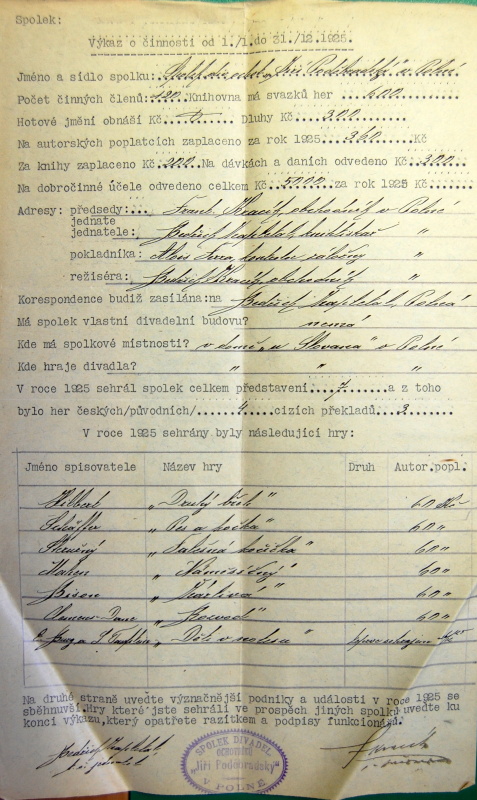 Spolek:
Výkaz o činnosti od 1./1.do 31./12.1925.
Jméno a sídlo spolku: "Jiří Poděbradský" v Polné
Počet činných členů: 120 Knihovna má svazků her 600
Hotové jmění obnáší Kč 0 Dluhy Kč 300
Na autorských poplatcích zaplaceno za rok 1925 360 Kč
Za knihy zaplaceno Kč 200 Na dávkách a daních odvedeno Kč 300
Na dobročinné účele odvedeno celkem Kč 5000 za rok 1925 Kč
Adresy: předsedy: Frant. obchodník v Polné
jednate
jednatele: Bedřich knihkař "
pokladníka: Alois záložny "
režiséra: Bedřich obchodník "
Korespondence budiž zasílána: na Bedřich Polná
Má spolek vlastní divadelní budovu? nemá
Kde má spolkové místnosti? v domě „u Slovana" v Polné
Kde hraje divadla? " " "
V roce 1925 sehrál spolek celkem představení 7 a z toho
bylo her českých/původních/ 4 cizích překladů 3
V roce 1925 sehrány byly následující hry:
Jméno spisovatele Název hry Druh Autor.popl.
Hilbert „Druhý břeh" 60 Kč
Schäffer „Pes a kočka" 60 "
„Falešná kočička" 60 "
Mahen „Náměsíčný" 60 "
Bisson „Žárlivá" 60 "
60 "
„Děti v notesu"
Na druhé straně uveďte význačnější podniky a události v roce 1925 se
sběhnuvší.Hry které jste sehráli ve prospěch jiných spolků uveďte ku
konci výkazu,který opatřete razítkem a podpisy funkcionářů.
SPOLEK DIVADEL.
OCHOTNÍKŮ
„Jiří Poděbradský"
V POLNÉ